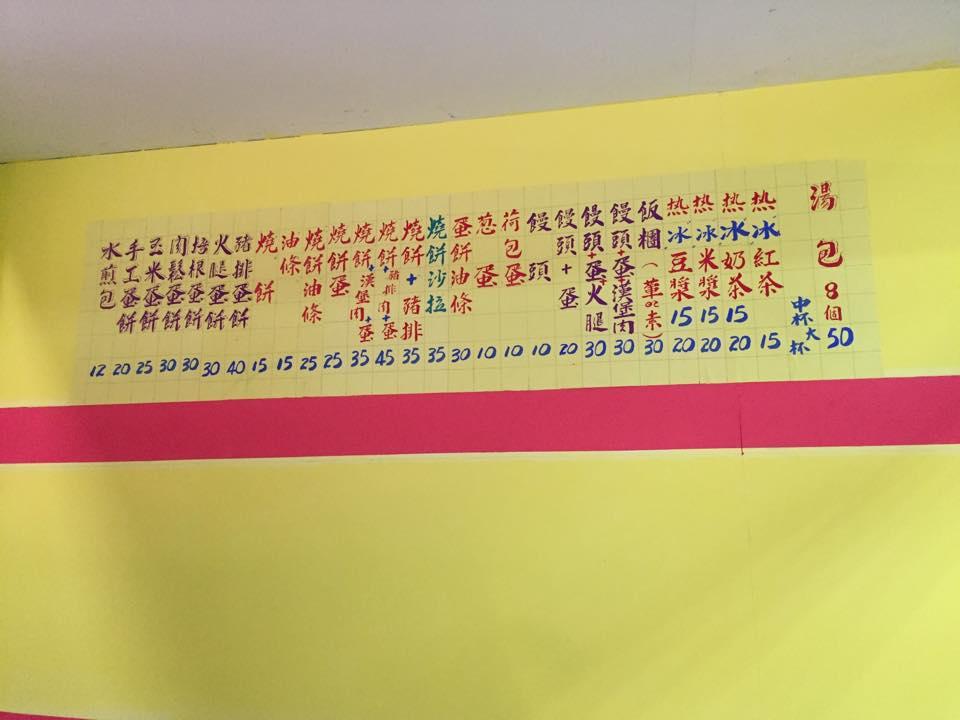 湯包8個 50
中杯 大杯
热冰紅茶 15
热冰奶茶 15 20
热冰米漿 15 20
热冰豆漿 15 20
飯糰(葷or素) 30
饅頭+蛋漢堡肉 30
饅頭+蛋火腿 30
饅頭+蛋 20
饅頭 10
荷包蛋 10
葱蛋 10
蛋餅油條 30
燒餅沙拉 35
燒餅+豬排 35
燒餅+豬排肉+蛋 45
燒餅+漢堡肉+蛋 35
燒餅蛋 25
燒餅油條 25
油條 15
燒餅 15
豬排蛋餅 40
火腿蛋餅 30
培根蛋餅 30
肉鬆蛋餅 30
玉米蛋餅 25
手工蛋餅 20
水煎包 12